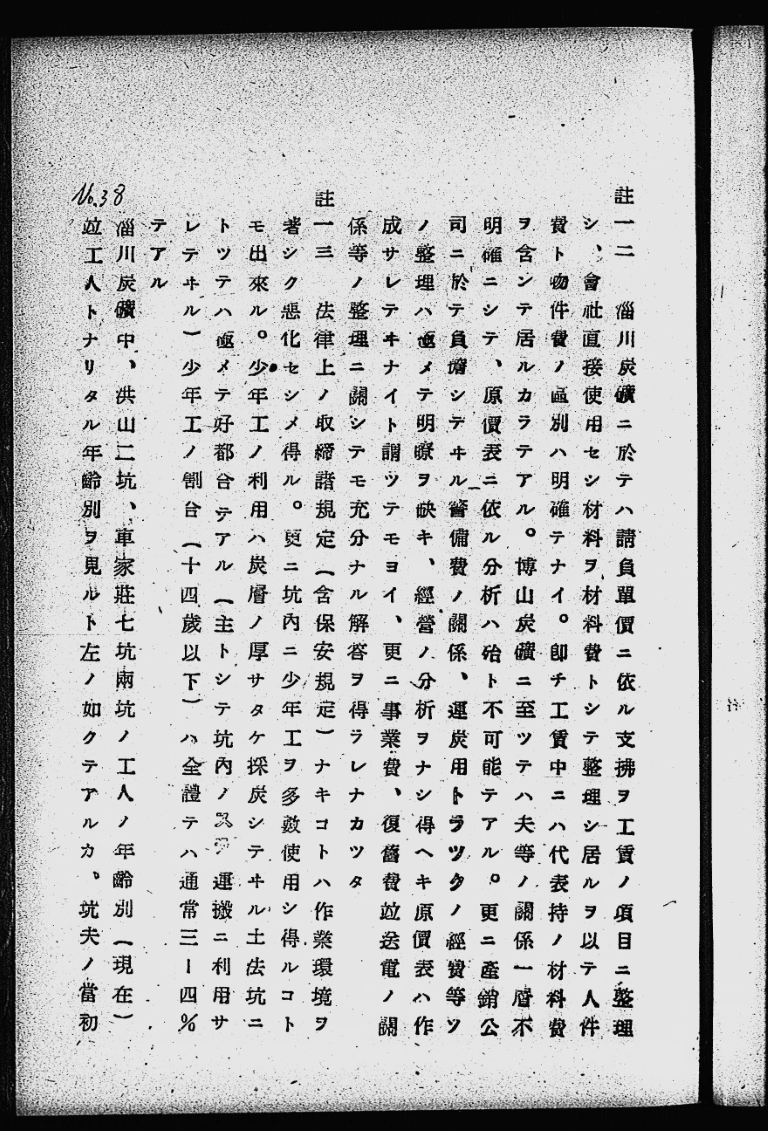 註一二　淄川炭礦ニ於テハ請負單價ニ依ル支拂ヲ工賃ノ項目ニ整理
シ、會社直接使用セシ材料ヲ材料費トシテ整理シ居ルヲ以テ人件
費ト物件費ノ區別ハ明確テナイ。卽チ工賃中ニハ代表持ノ材料費
ヲ含ンテ居ルカラテアル。博山炭礦ニ至ツテハ夫等ノ關係一層不
明確ニシテ、原價表ニ依ル分析ハ殆ト不可能テアル。更ニ產銷公
司ニ於テ負擔シテヰル警備費ノ關係、運炭用トラツクノ經費等ツ
ノ整理ハ極メテ明瞭ヲ缺キ、經營ノ分析ヲナシ得ヘキ原價表ハ作
成サレテヰナイト謂ツテモヨイ、更ニ事業費、復舊費竝送電ノ關
係等ノ整理ニ關シテモ充分ナル解答ヲ得ラレナカツタ
註一三　法律上ノ取締諸規定（含保安規定）ナキコトハ作業環境ヲ
著シク惡化セシメ得ル。更ニ坑內ニ少年工ヲ多數使用シ得ルコト
モ出來ル。少年工ノ利用ハ炭層ノ厚サタケ採炭シテヰル土法坑ニ
トツテハ極メテ好都合テアル（主トシテ坑內ノ 運搬ニ利用サ
レテヰル）少年工ノ割合（十四歲以下）ハ全體テハ通常三ー四％
テアル
淄川炭礦中、洪山二坑、車家莊七坑兩坑ノ工人ノ年齡別（現在）
竝工人トナリタル年齡別ヲ見ルト左ノ如クテアルカ、坑夫ノ當初
No.38